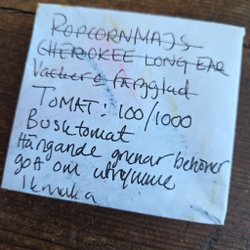 POPCORNMAJS
CHEROKEE LONG EAR
Vacker o färgglad
TOMAT: 100/1000
Busktomat
Hängande grenar behöver
gott om utrymme
1 kruka